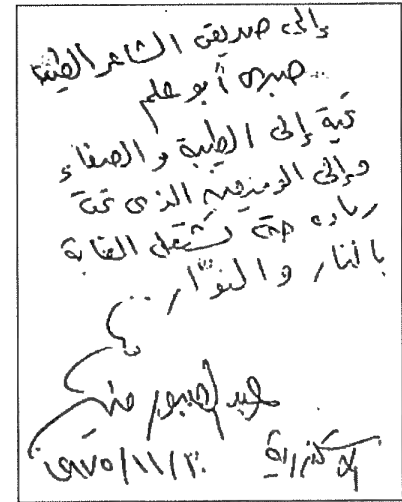 إلى صديقى الشاعر الطيب
صبرى أبو علم
تحية إلى الطيبة والصفاء
وإلى الوميض الذى تحت
رماده حتى تشتعل الغابة
بالنار والنوّار ..
سعيد الصبور منير
الإسكندرية
١٩٧٥/١١/٣٠